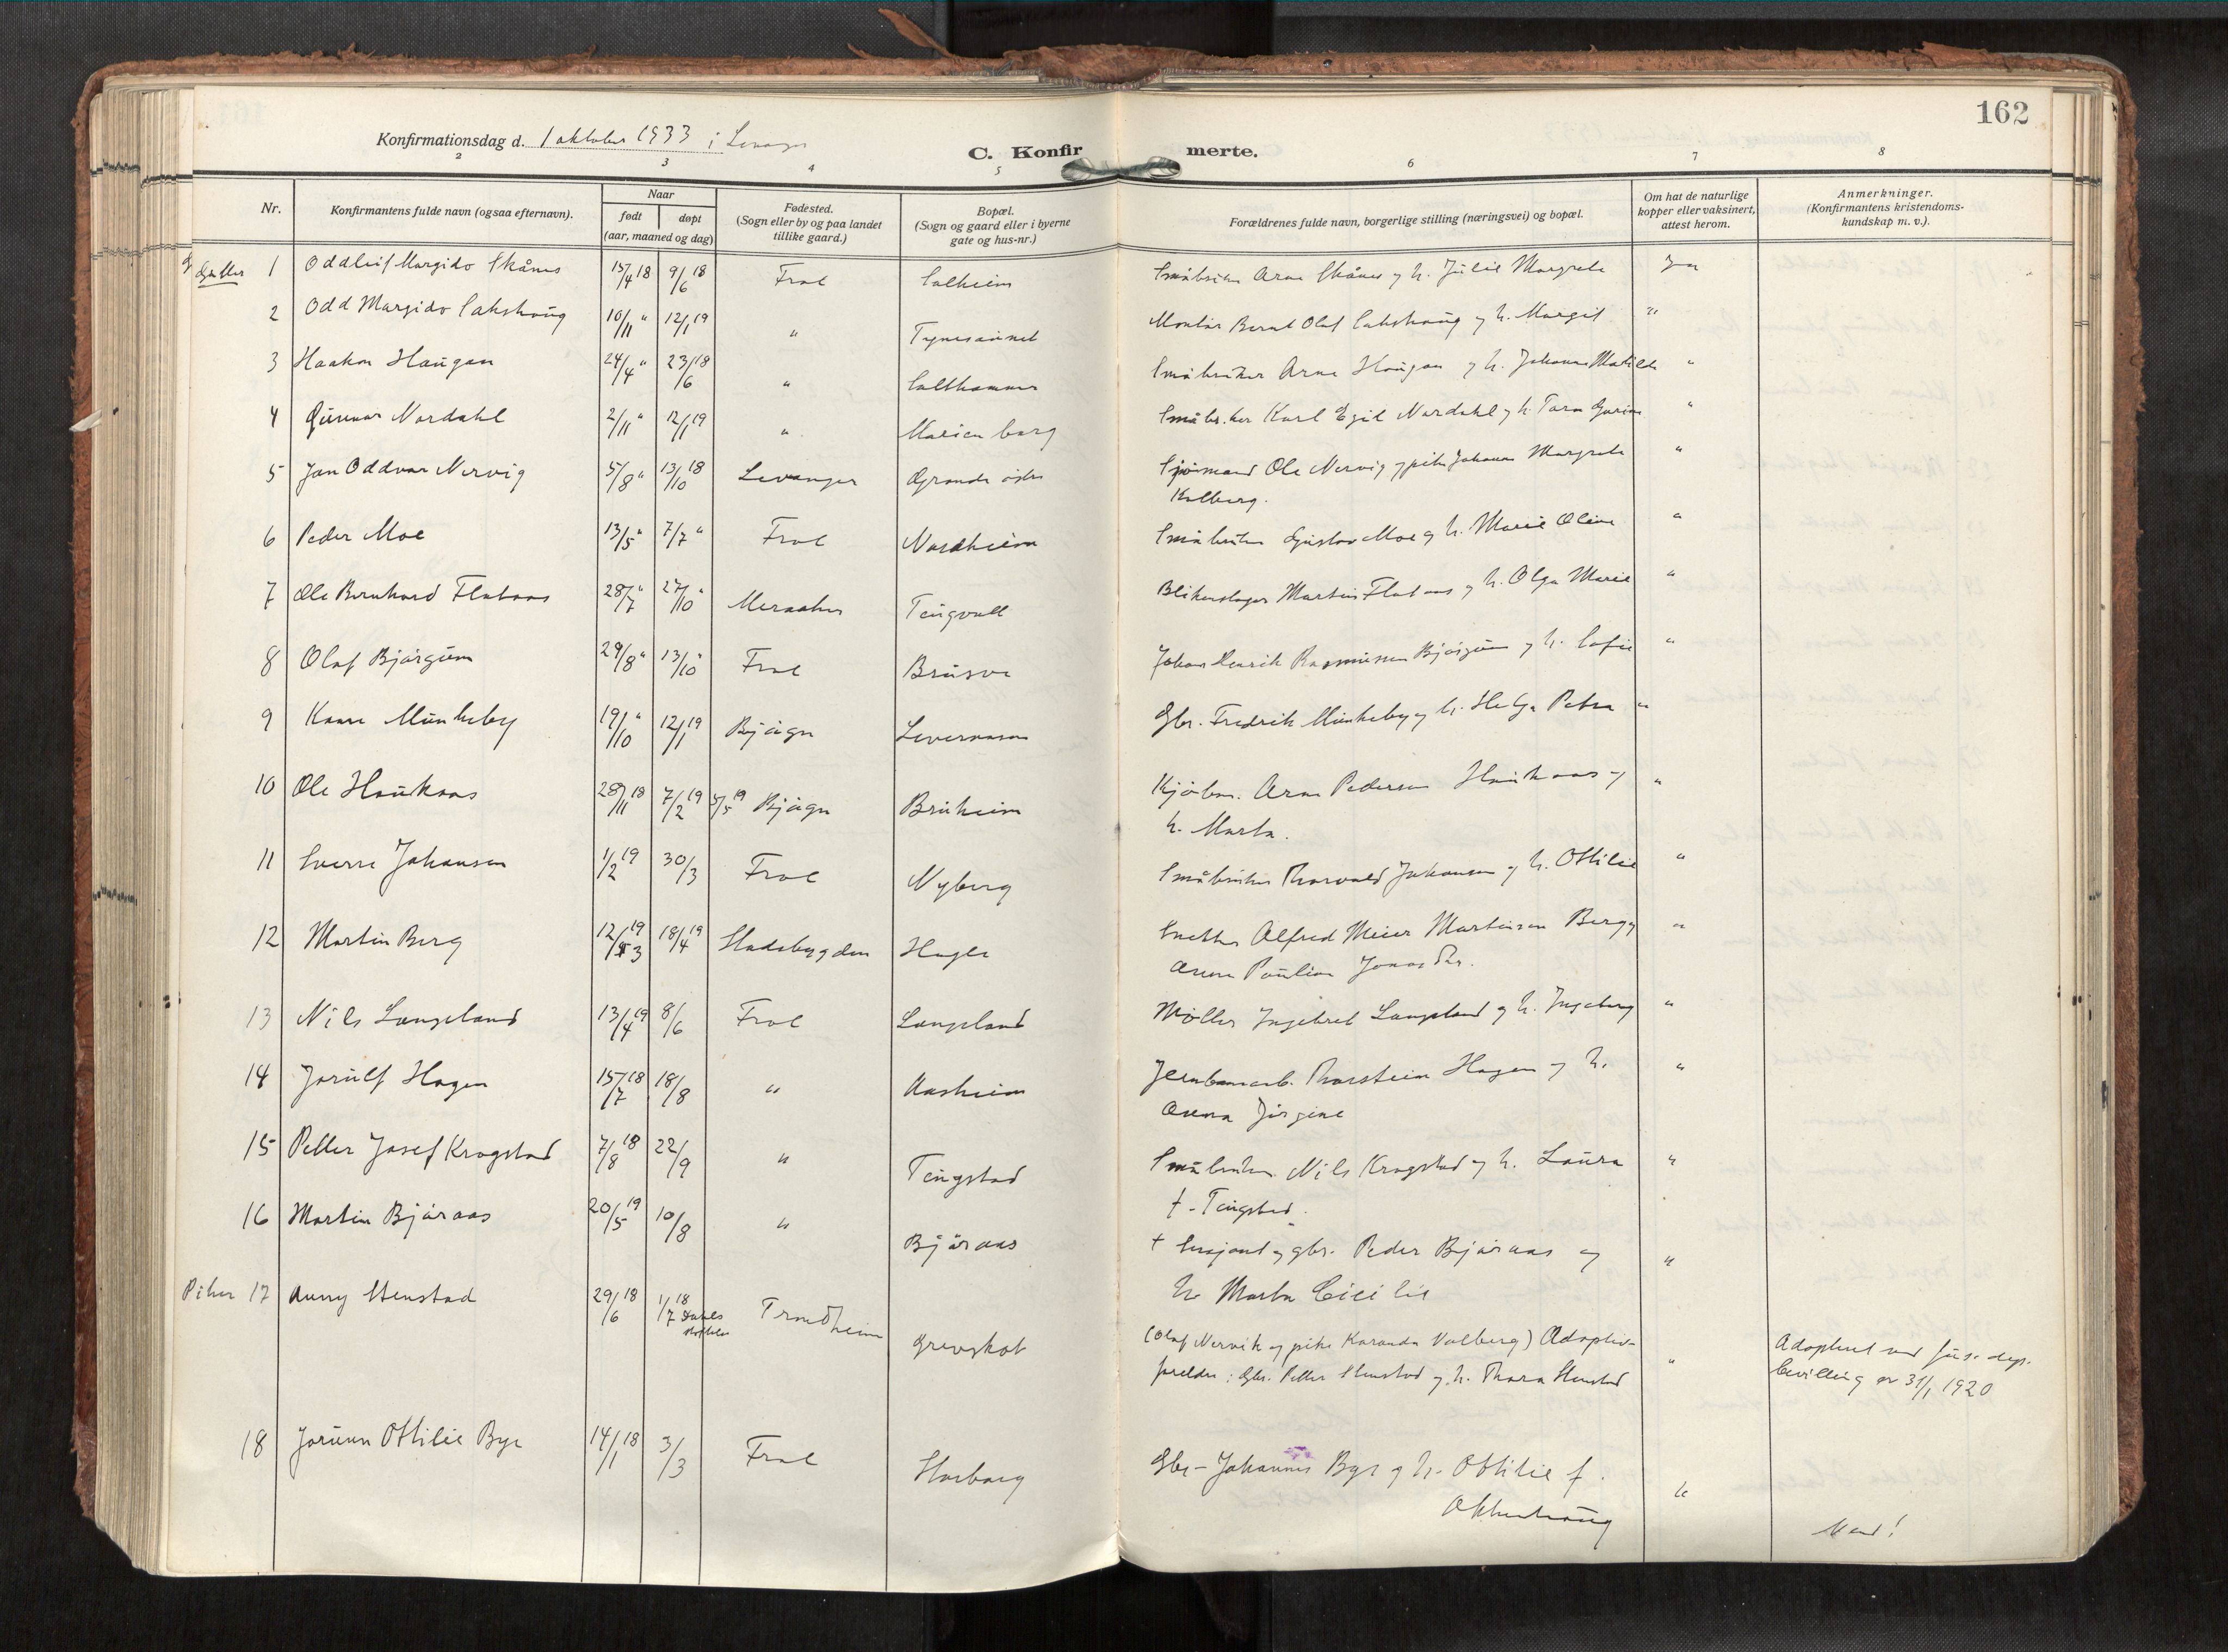 162
Konfirmationsdag d. 1 oktober 1933 i Levanger
C. Konfirmerte.
2 3 4 5 6 7 8
Nr.
Konfirmantens fulde navn (ogsaa efternavn).
Naar
født døpt
(aar, maaned og dag)
Fødested.
(Sogn eller by og paa landet
tillike gaard.)
Bopæl.
(Sogn og gaard eller i byerne
gate og hus-nr.)
Forældrenes fulde navn, borgerlige stilling (næringsvei) og bopæl.
Om hat de naturlige
kopper eller vaksinert,
attest herom.
Anmerkninger.
(Konfirmantens kristendoms-
kundskap m. v.).
Gutter 1 Oddleif Margido Skånes 15/4 18 9/6 18 Frol Salheim Småbruker Arne Skånes og h. Julie Margrete Ja
2 Odd Margido Sakshaug 10/11 " 12/1 19 " Tynesaunet Montør Bernt Olaf Sakshaug og h. Margit "
3 Haakon Haugan 24/4 " 23/6 18 " Salthammer Småbruker Arne Haugan og h. Johanna Matilde "
4 Gunnar Nordahl 2/11 " 12/1 19 " Marienborg Småbr.ker Karl Egil Nordahl og h. Tora Gurine "
5 Jan Oddvar Nervig 5/8 " 13/10 18 Levanger Grande østre Sjømand Ole Nervig og pike Johanna Margrete "
Kolberg.
6 Peder Moe 13/5 " 7/7 " Frol Nordheim Småbruker Gustav Moe og h. Marie Oline "
7 Ole Bernhard Flataas 28/7 " 27/10 " Meraaker Tingvoll Blikenslager Martin Flataas og h. Olga Marie "
8 Olaf Bjørgum 29/8 " 13/10 " Frol Brusve Johan Henrik Rasmussen Bjørgum og h. Sofie "
9 Kaare Munkeby 19/10 " 12/1 19 Bjågn Leveraasen Gbr. Fredrik Munkeby og h. Helga Petra "
10 Ole Haukaas 28/11 18 7/2 19 4/5 19 Bjågn Bruheim Kjøbm. Arne Pedersen Haukaas og "
h. Marta.
11 Sverre Johansen 1/2 19 30/3 Frol Nyberg Småbruker Thorvald Johansen og h. Ottilie "
12 Martin Berg 12/3 19 18/4 19 Stadsbygden Hegle Snekker Alfred Meier Martinsen Berg og "
Anna Pauline Jonasdtr.
13 Nils Langeland 13/4 19 8/6 Frol Langeland Møller Ingebret Langeland og h. Ingeborg "
14 Jorulf Hagen 15/7 18 18/8 " Aasheim Jernbanearb. Thorstein Hagen og h. "
Anna Jørgine
15 Petter Josef Krogstad 7/8 18 22/9 " Tingstad Småbruker Nils Krogstad og h. Laura "
† - Tingstad.
16 Martin Bjøraas 20/5 19 10/8 " Bjøraas † Sersjant og gbr. Peder Bjøraas og "
h. Marta Cicilie
Piker 17 Anny Stenstad 29/6 18 1/7 18 Trondheim Grevskot (Olaf Nervik og pike Karanda Valberg) Adoptiv-
foreldre: Gbr. Petter Stenstad og h. Thora Stenstad " Adoptert ved jus. dep.
bevilling av 31/1 1920
18 Jorunn Ottilie Bye 14/1 18 3/3 Frol Storborg Gbr - Johannes Bye og h. Ottilie f.
Okkenhaug "
Vend!